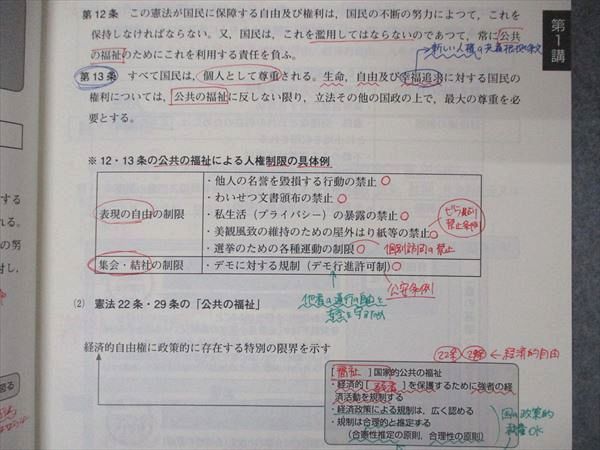 第12条 この憲法が国民に保障する自由及び権利は，国民の不断の努力によつて，これを
保持しなければならない。又，国民は，これを濫用してはならないのであつて，常に公共
の福祉のためにこれを利用する責任を負ふ。
新しい人権の
第1講
第13条 すべて国民は，個人として尊重される。生命，自由及び幸福追求に対する国民の
権利については，公共の福祉に反しない限り，立法その他の国政の上で，最大の尊重を必
要とする。
※12・13条の公共の福祉による人権制限の具体例
表現の自由の制限
・他人の名誉を毀損する行動の禁止 ○
・わいせつ文書頒布の禁止 ○
・私生活（プライバシー）の暴露の禁止 ○
・美観風致の維持のための屋外はり紙等の禁止 ○
ビラ貼り
禁止条例
・選挙のための各種運動の制限 ○ 個別訪問の禁止
集会・結社の制限
・デモに対する規制（デモ行進許可制）○
公安条例
他者の通行の自由と
安全を守るため
(2) 憲法22条・29条の「公共の福祉」
経済的自由権に政策的に存在する特別の限界を示す
22条 29条 ← 経済的自由
［福祉］国家的公共の福祉
・経済的［弱者］を保護するために強者の経
済活動を規制する
・経済政策による規制は，広く認める
・規制は合理的と推定する
（合憲性推定の原則，合理性の原則）
国の政策的
OK
する
れる。
の努
対し，
図る